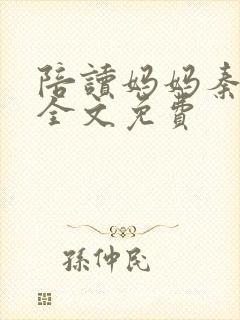 陪讀妈妈秦
全文免費
孫仲民